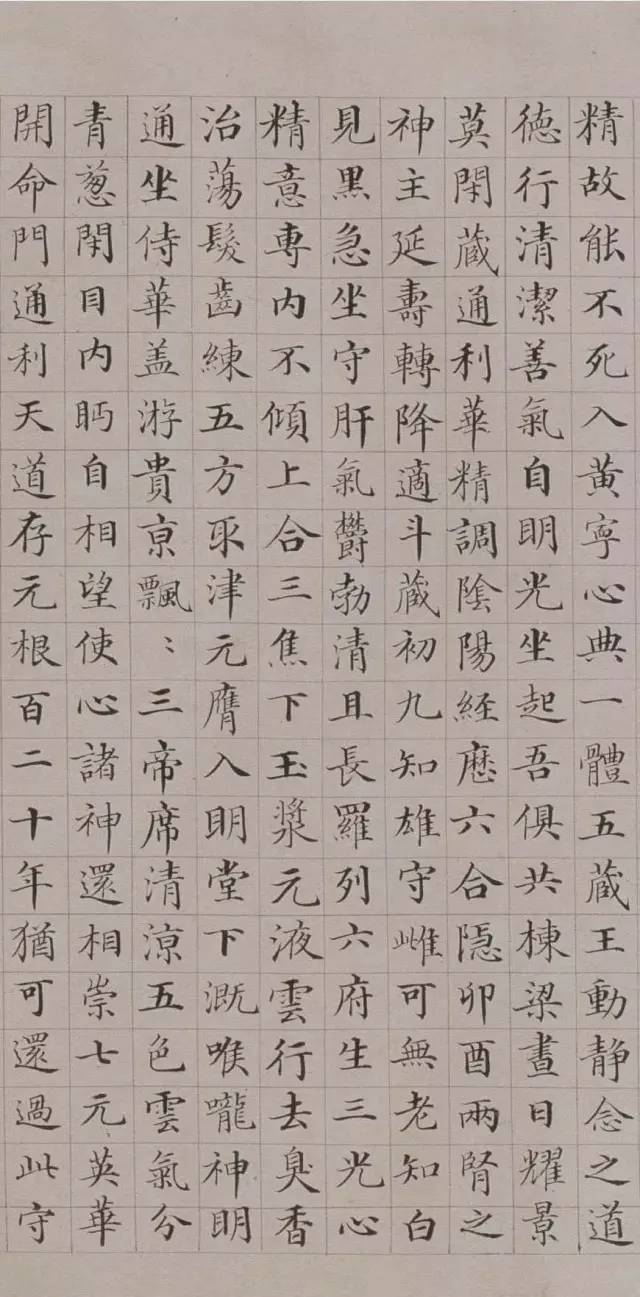 精故能不死入黄寧心典一體五蔵王動静念之道
德行清潔善氣自明光坐起吾俱共棟梁晝日耀景
莫閇蔵通利華精調陰陽経歷六合隱卯酉兩腎之
神主延壽轉降適斗蔵初九知雄守雌可無老知白
見黑急坐守肝氣欝勃清且長羅列六府生三光心
精意專內不傾上合三焦下玉漿元液雲行去臭香
治蕩髮齒練五方取津元膺入明堂下溉喉嚨神明
通坐侍華盖游貴京飄〻三帝席清涼五色雲氣分
青葱閇目內眄自相望使心諸神還相崇七元英華
開命門通利天道存元根百二十年猶可還過此守